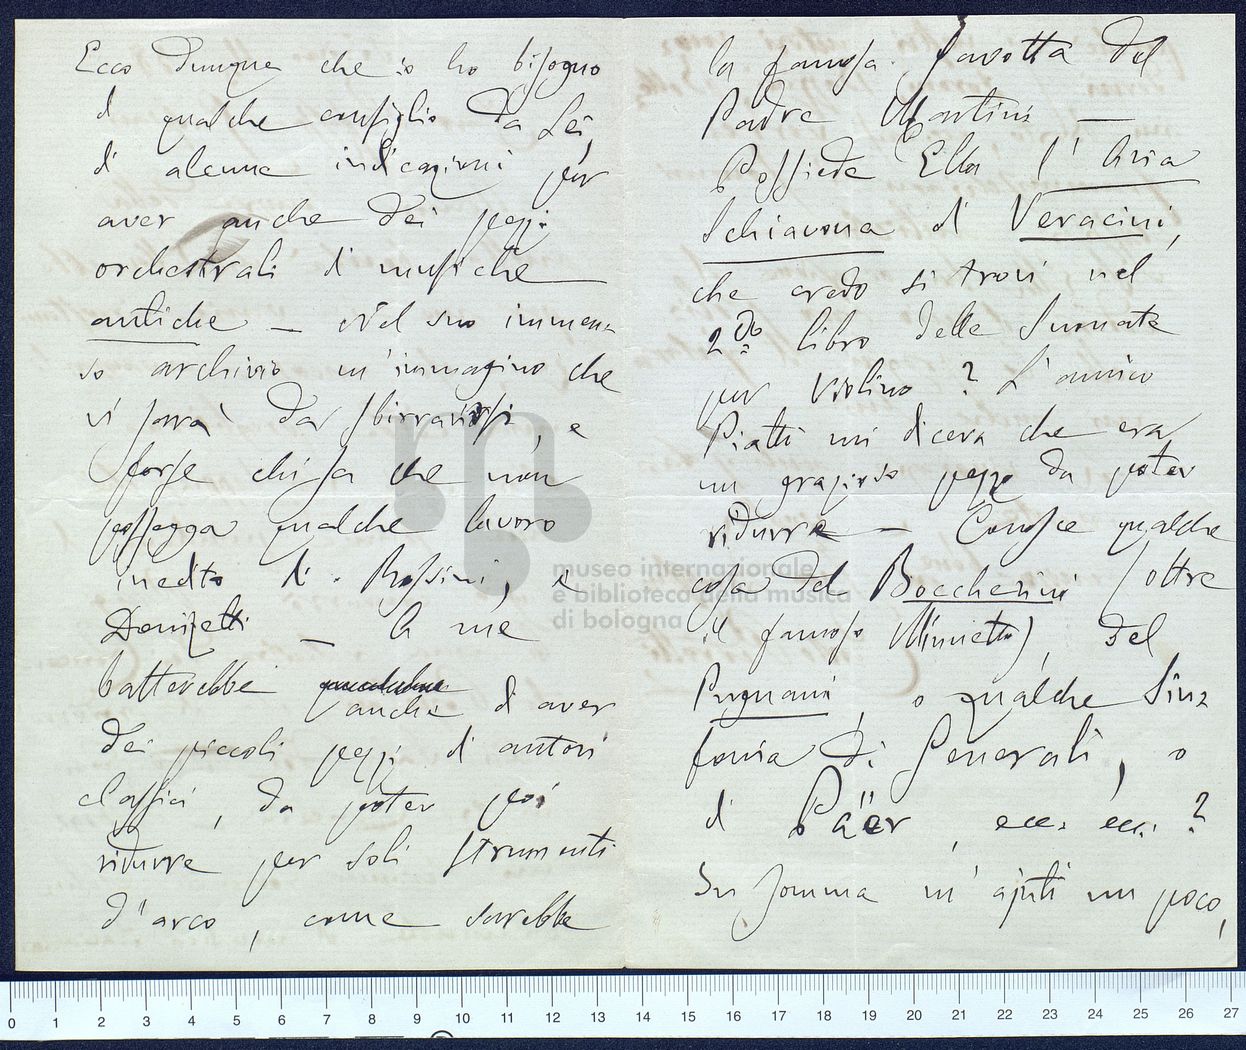 Ecco dunque che io ho bisogno
di qualche consiglio da Lei,
di alcune indicazioni per
aver anche dei pezzi
orchestrali di musiche
antiche — Nel suo immen-
so archivio m'immagino che
vi sarà da sbizzarrirsi, e
forse chi sa che non
possegga qualche lavoro
inedito di Rossini, o
Donizetti — A me
batterebbe
anche di aver
dei piccoli pezzi di autori
classici, da poter poi
ridurre per soli strumenti
d'arco, come sarebbe
la famosa Gavotta del
Padre Martini —
Possiede Ella l'Aria
Schiavona di Veracini,
che credo si trovi nel
2do libro delle Suonate
per Violino? L'amico
Piatti mi diceva che era
un grazioso pezzo da poter
ridurre — Conosce qualche
cosa del Boccherini (oltre
il famoso Minuetto), del
Pugnani, o qualche Sin=
fonia di Generali, o
di Päer, ecc. ecc.?
In somma m'ajuti un poco,
museo internazionale
e biblioteca della musica
di bologna
0 1 2 3 4 5 6 7 8 9 10 11 12 13 14 15 16 17 18 19 20 21 22 23 24 25 26 27